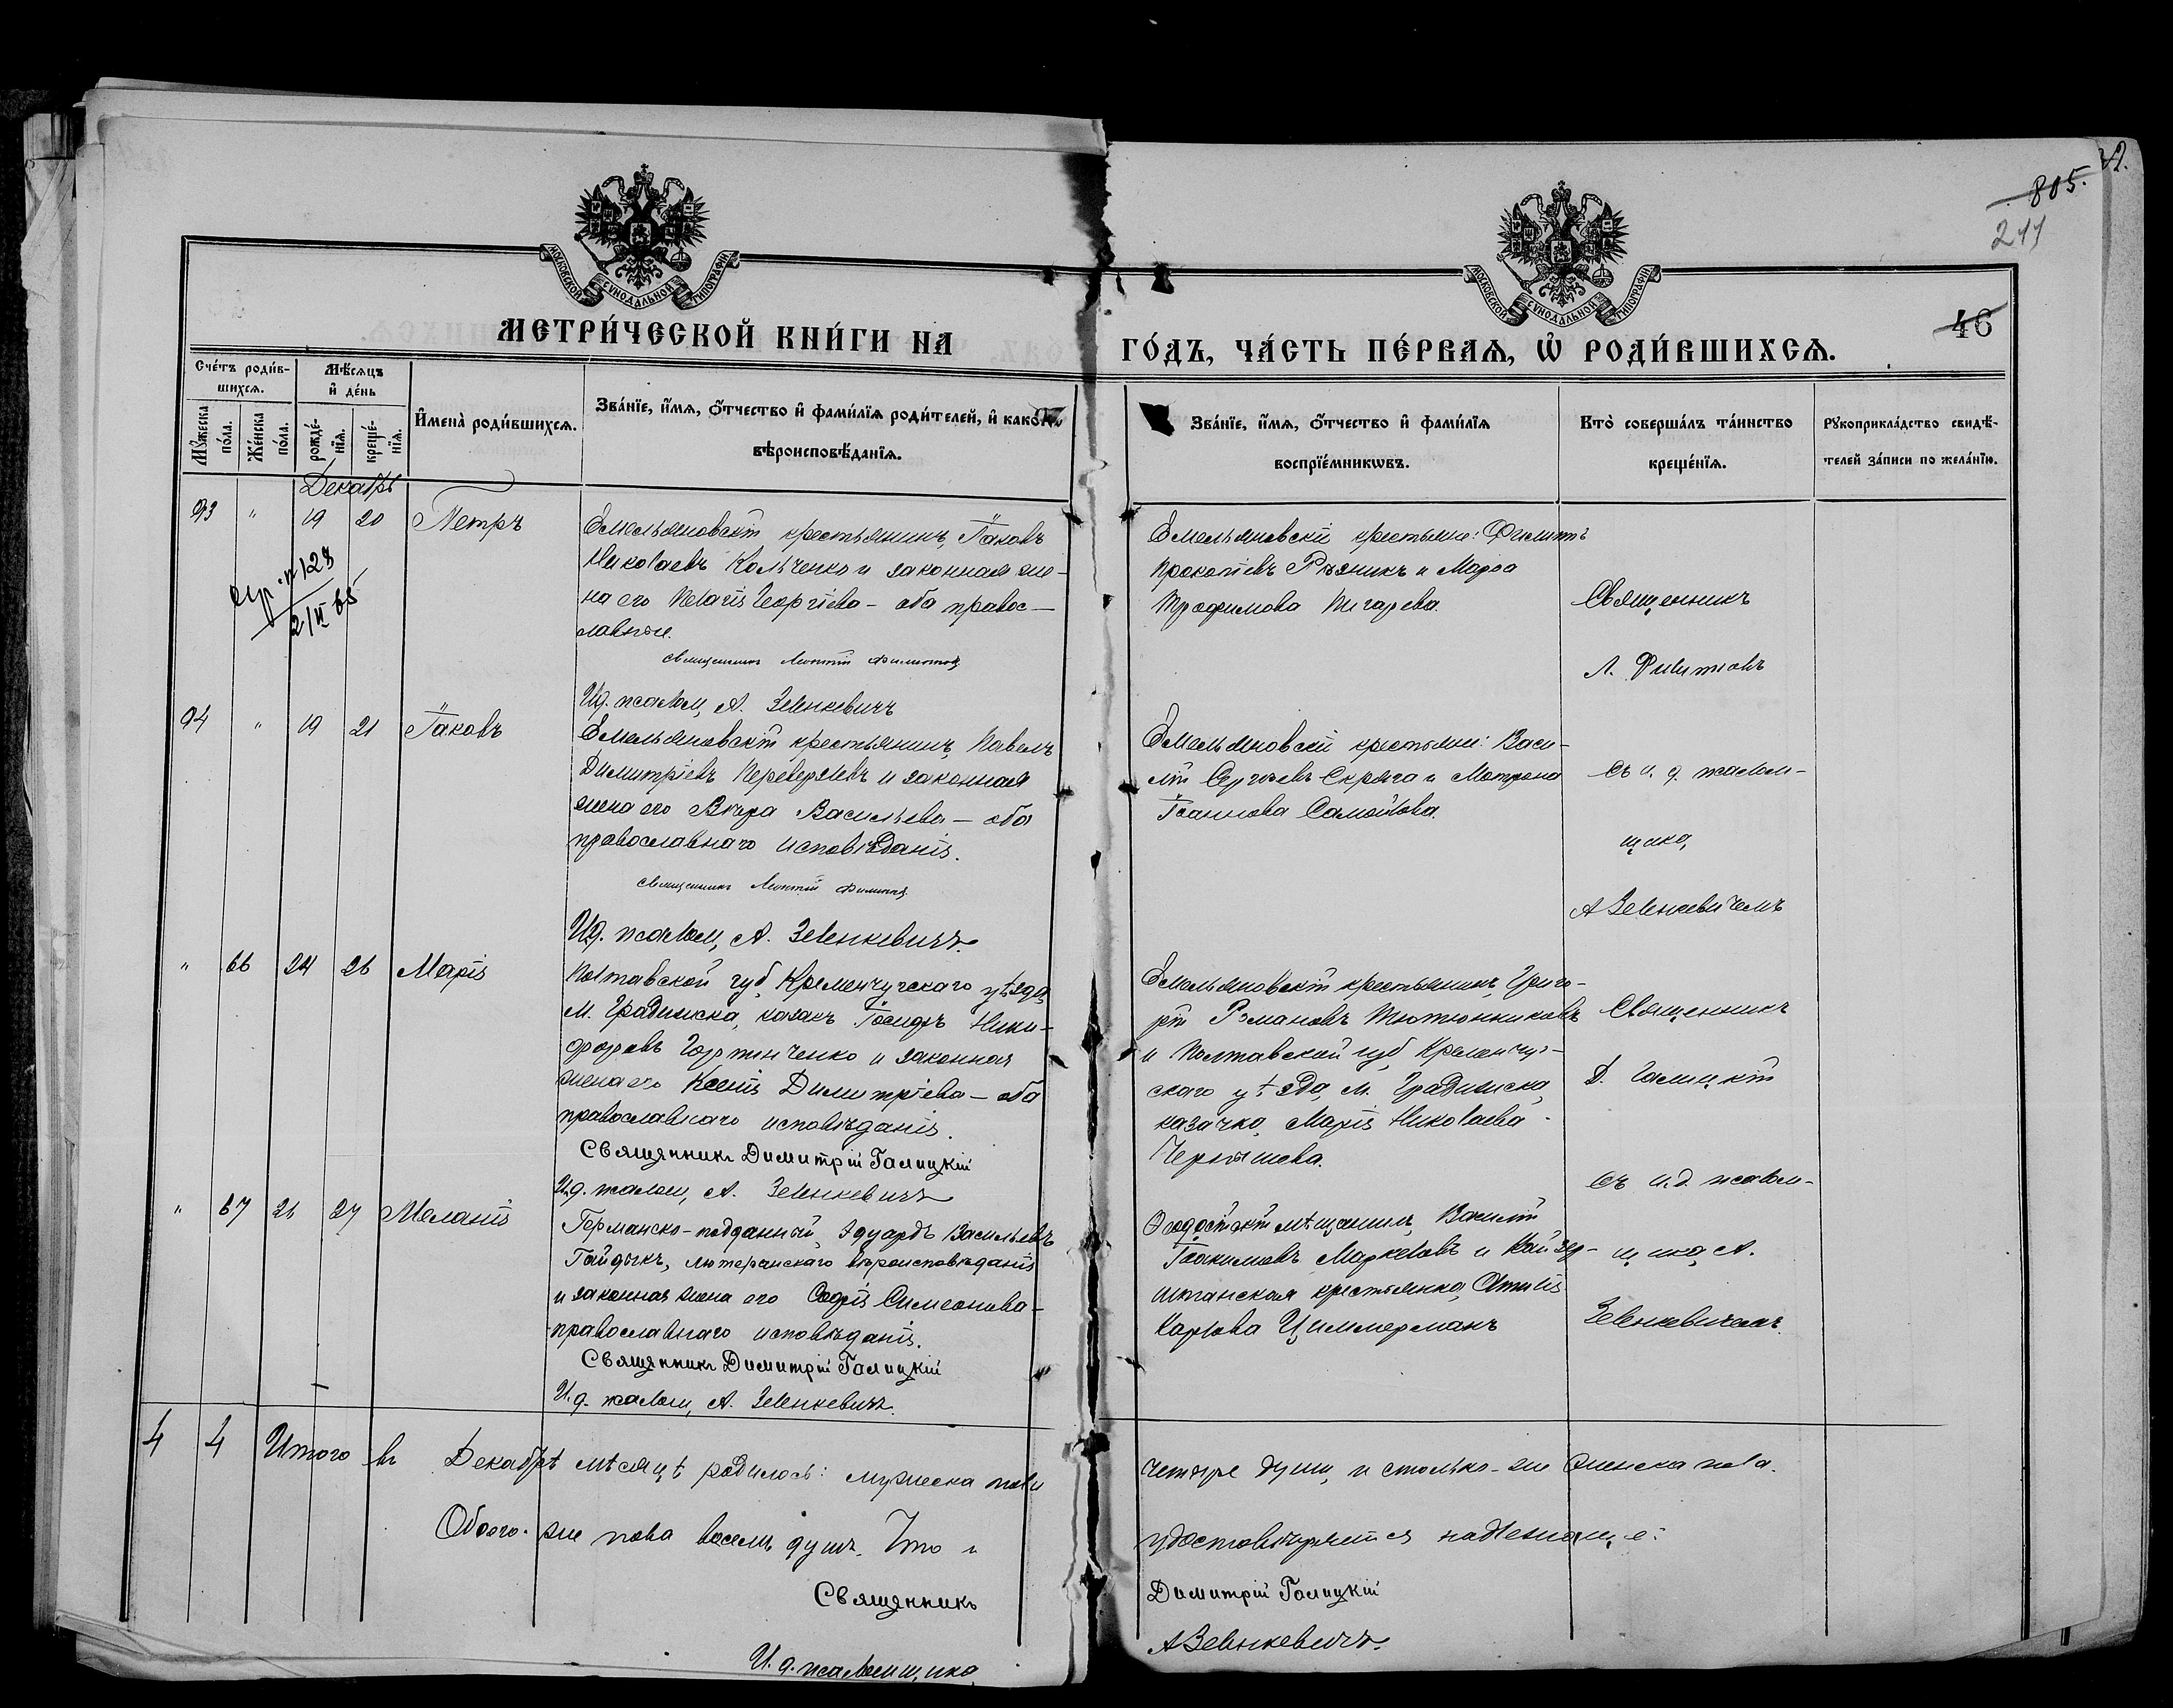 805.
211
46
МОСКОВСКОЙ СУНОДАЛЬНОЙ ТИПОГРАФІИ
МОСКОВСКОЙ СУНОДАЛЬНОЙ ТИПОГРАФІИ
МЕТРИ́ЧЕСКОЙ КНИ́ГИ НА
ГО́ДЪ, ЧА́СТЬ ПЕ́РВАѦ, Ѡ҆ РОДИ́ВШИХСѦ.
Сче́тъ роди́в-
шихсѧ.
Мꙋ́жеска
по́ла.
Же́нска
по́ла.
Мѣ́сѧцъ
и҆ де́нь
рожде́-
нїѧ.
креще́-
нїѧ.
И҆мена̀ роди́вшихсѧ.
Зва́нїе, и҆́мѧ, ѻ҆́тчество и҆ фами́лїѧ роди́телей, и҆ како́гѡ
вѣроисповѣ́данїѧ.
Зва́нїе, и҆́мѧ, ѻ҆́тчество и҆ фами́лїѧ
воспрїе́мникѡвъ.
Кто̀ соверша́лъ та́инство
креще́нїѧ.
Рꙋкоприкла́дство свидѣ́-
телей за́писи по жела́нїю.
Декабрь
93 " 19 20 Петръ
Емельяновскій крестьянинъ, Іаковъ
Николаевъ Кольченко и законная же-
на его Пелагія Георгіева - оба правос-
лавные.
Священникъ Леонтій Филиппов
И.д. псалом, А. Зеленкевичъ
Емельяновскіи крестьяне: Филиппъ
Прокопіевъ Рѣзникъ и Марѳа
Трофимова Пигарева.
Священникъ
Л. Филиповъ
94 " 19 21 Іаковъ
Емельяновскій крестьянинъ, Павелъ
Димитріевъ Переверзевъ и законная
жена его Вѣра Васильева - оба
православнаго исповѣданія.
Священникъ Леонтій Филиппов
И.д. псалом, А. Зеленкевичъ.
Емельяновскіи крестьяне: Васи-
лій Сергѣевъ Скряга и Матрона
Іоаннова Самойлова.
съ и. д. псалом-
щика,
А Зеленкевичемъ
" 66 24 26 Марія
Полтавской губ, Кременчугскаго уѣзда,
М. Градижска, казакъ Іосифъ Ники-
форовъ Гортинченко и законная
жена его Ксенія Димитріева - оба
православнаго исповѣданія.
Священникъ Димитрій Галицкій
И.д. псалом, А. Зеленкевичъ
Емельяновскій крестьянинъ, Григо-
рій Романовъ Тютюнниковъ
и Полтавской губ, Кременчуг-
скаго уѣзда, м. Градижска,
казачка, Марія Николаева
Чернышова.
Священникъ
Д. Галицкій
съ и.д. псалом-
" 67 26 27 Меланія
Германско-подданный, Эдуардъ Васильевъ
Гайдыкъ, лютеранскаго вѣроисповѣданія
и законная жена его Софія Симеонова -
православнаго исповѣданія.
Священникъ Димитрій Галицкій
И.д. псалом, А. Зеленкевичъ.
Ѳеодосійскій мѣщанинъ, Василій
Іоакимовъ Маркеловъ и Кайзер-
штанская крестьянка, Отилія
Карлова Циммерманъ
щика, А.
Зеленкевичемъ.
4 4 Итого въ Декабрѣ мѣсяцѣ родилось: мужеска пола
четыре души, и столько-же женска пола.
Обоего-же пола восемь душъ. Что и
удостовѣряется надлежаще:
Священникъ
Димитрій Галицкій
И. д. псаломщика,
А Зеленкевичъ.